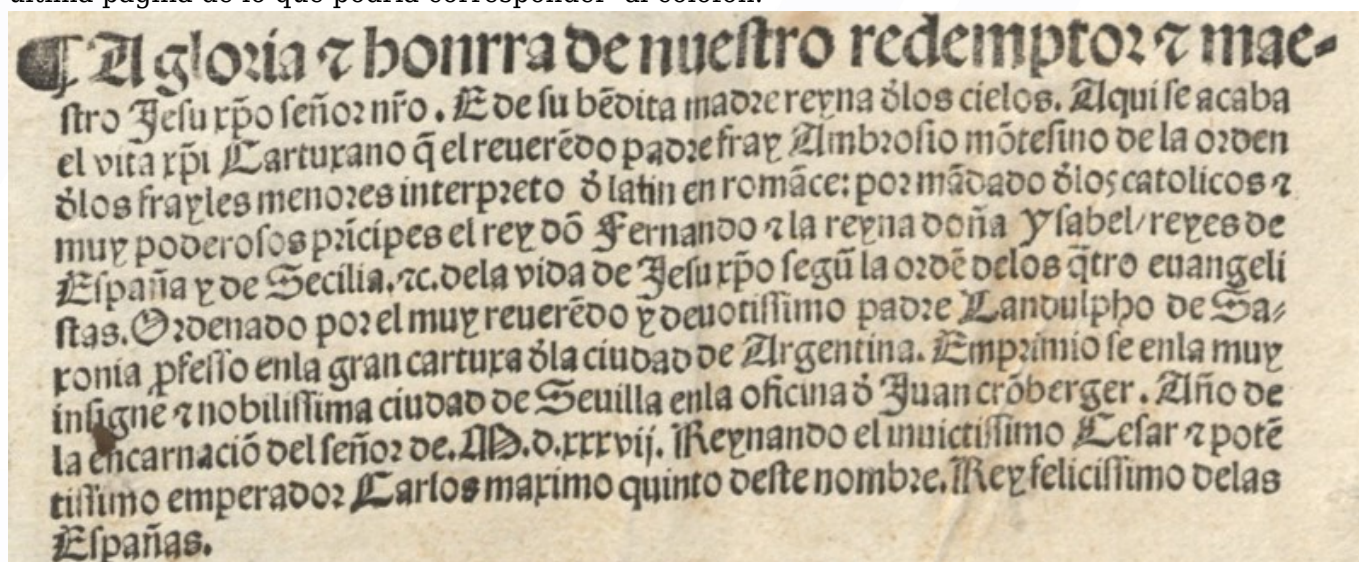 última página de lo que podría corresponder al colofón.
¶ A gloria ⁊ honrra de nuestro redemptor ⁊ mae-
stro Jesu xp̃o señor nr̃o. E de su bẽdita madre reyna d̃los cielos. Aqui se acaba
el vita xp̃i Cartuxano q̃ el reuerẽdo padre fray Ambrosio mõtesino de la orden
d̃los frayles menores interpreto d̃ latin en romãce: por mãdado d̃los catolicos ⁊
muy poderosos prĩcipes el rey dõ Fernando ⁊ la reyna doña Ysabel/ reyes de
España y de Secilia. ⁊c. dela vida de Jesu xp̃o segũ la ordẽ delos q̃tro euangeli
stas. Ordenado por el muy reuerẽdo ỹ deuotissimo padre Landulpho de Sa-
xonia p̃fesso enla gran cartuxa d̃la ciudad de Argentina. Emprimio se enla muy
insigne ⁊ nobilissima ciudad de Seuilla enla oficina d̃ Juan crõberger. Año de
la encarnaciõ del señor de. M. d. xxxvij. Reynando el inuictissimo Cesar ⁊ potẽ
tissimo emperador Carlos maximo quinto deste nombre. Rey felicissimo delas
Españas.